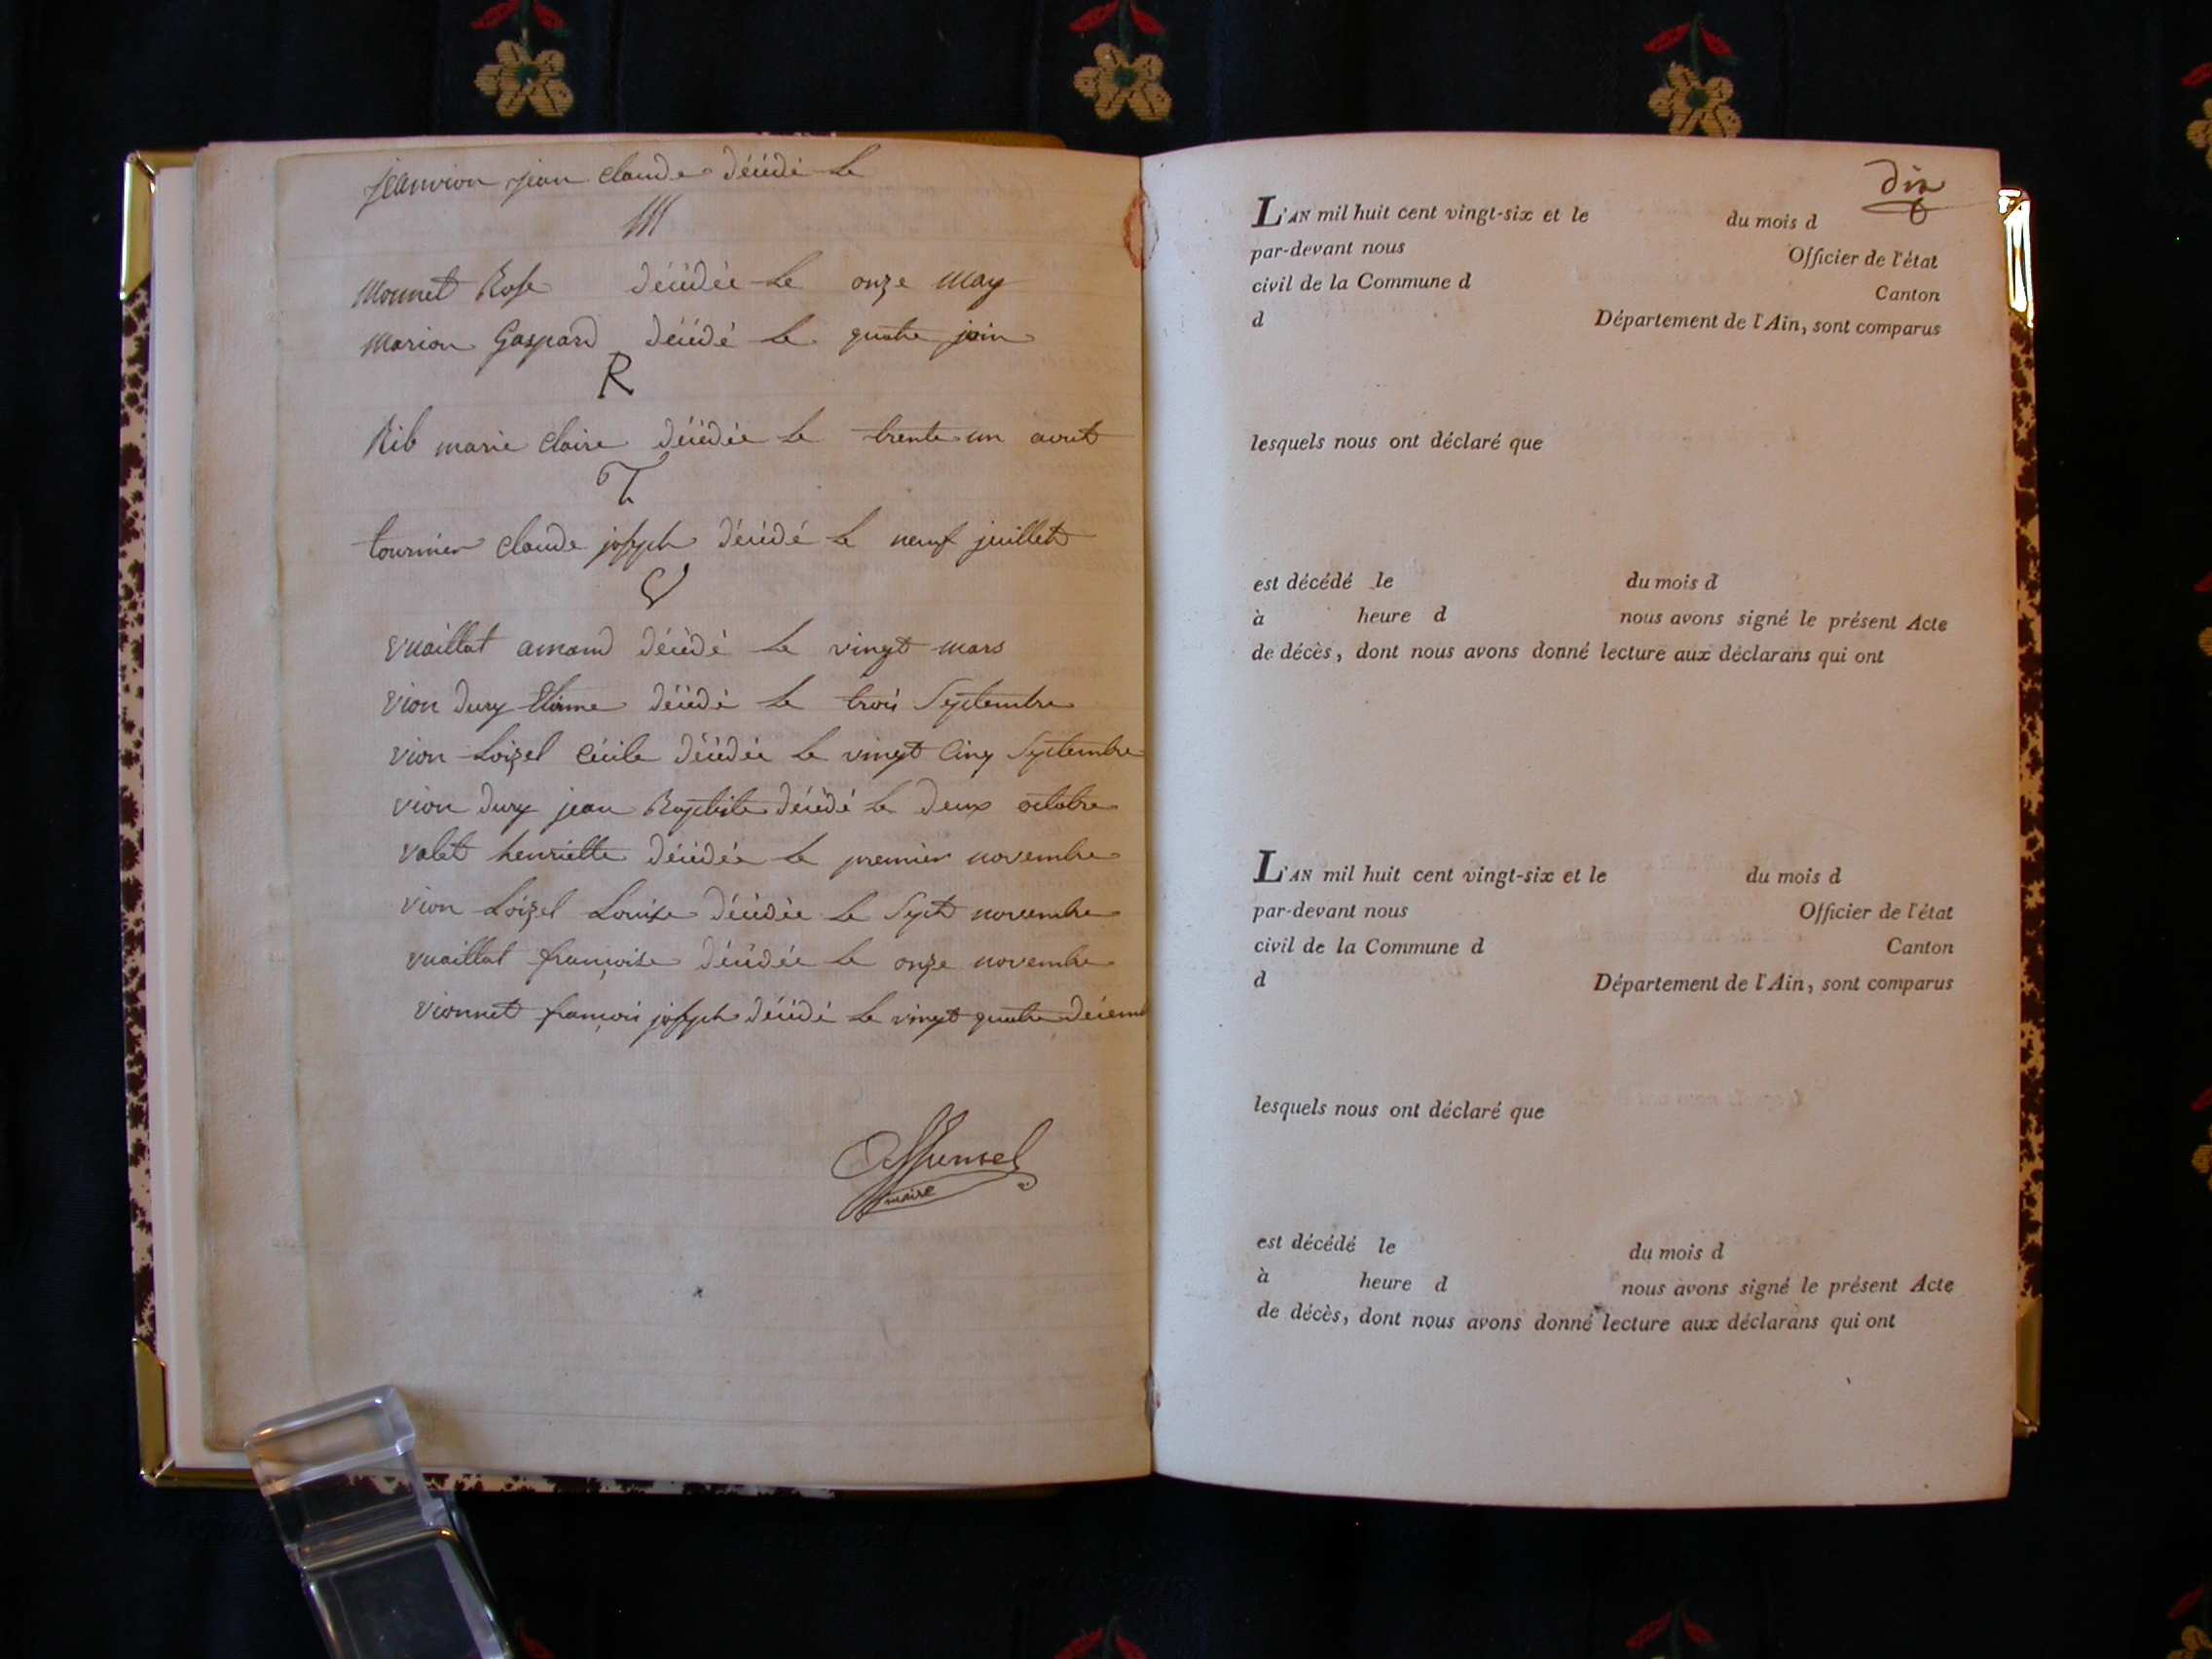 jeanvion jean claude décédé le
M
Monnet Rose décédée le onze may
Marion Gaspard décédé le quatre juin
R
Rib marie claire décédée le trente un aout
T
tournier claude joseph décédé le neuf juillet
V
vuaillat amand décédé le vingt mars
vion dury décédé le trois Septembre
vion Loizel Cécile décédée le vingt Cinq Septembre
vion dury jean Baptiste décédé le deux octobre
valet henriette décédée le premier novembre
vion Loizel Louise décédée le Sept novembre
vuaillat françoise décédée le onze novembre
vionnet françois joseph décédé le vingt quatre décemb
maire
dix
L'AN mil huit cent vingt-six et le du mois d
par-devant nous Officier de l'état
civil de la Commune d Canton
d Département de l'Ain, sont comparus
lesquels nous ont déclaré que
est décédé le du mois d
à heure d nous avons signé le présent Acte
de décès, dont nous avons donné lecture aux déclarans qui ont
L'AN mil huit cent vingt-six et le du mois d
par-devant nous Officier de l'état
civil de la Commune d Canton
d Département de l'Ain, sont comparus
lesquels nous ont déclaré que
est décédé le du mois d
à heure d nous avons signé le présent Acte
de décès, dont nous avons donné lecture aux déclarans qui ont